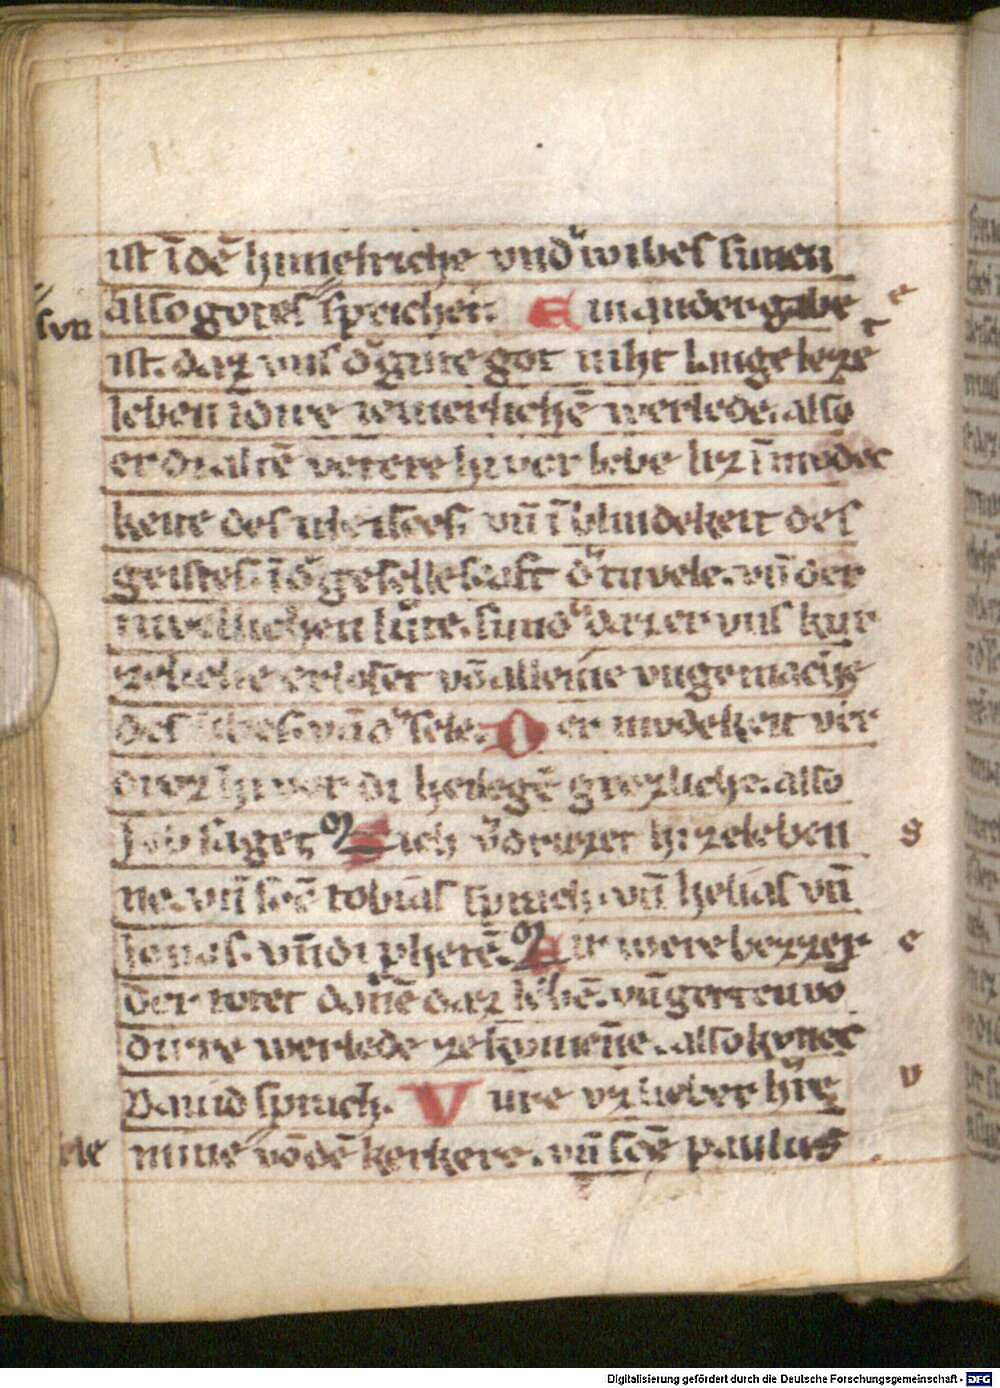 ist ī dē himelriche vnd' wibes sunen
svn
also gotes sprichet. Ein ander gabe e
ist. daz vns d' gute got niht lange leze
leben werlede. also
er di altē vetere hi vor lebe liez ī
keite des vleisces. vn̄ ī blindekeit des
geistes. ī d' gesellescaft d' tuvele. vn̄ der
lute. sund' daz er vns kur
zeliche erloset vō alleme vngemache
des libes. vn̄ d' sele. Der mvdekeit vir
hi vor di heilegē grozliche. also
Iob saget. Mich v'druzet hi zeleben s
ne. vn̄ scē tobias sprach. vn̄ helias vn̄
Ionas. vn̄ di phetē. Mir were bezzer e
der totet dāne daz lebē. vn̄
dirre werlede ze kvmēne. also kvnec
Dauid sprach. Vure vz lieber h're v
ele
mine vō dē kerkere. vn̄ scē paulus
Digitalisierung gefördert durch die Deutsche Forschungsgemeinschaft - DFG